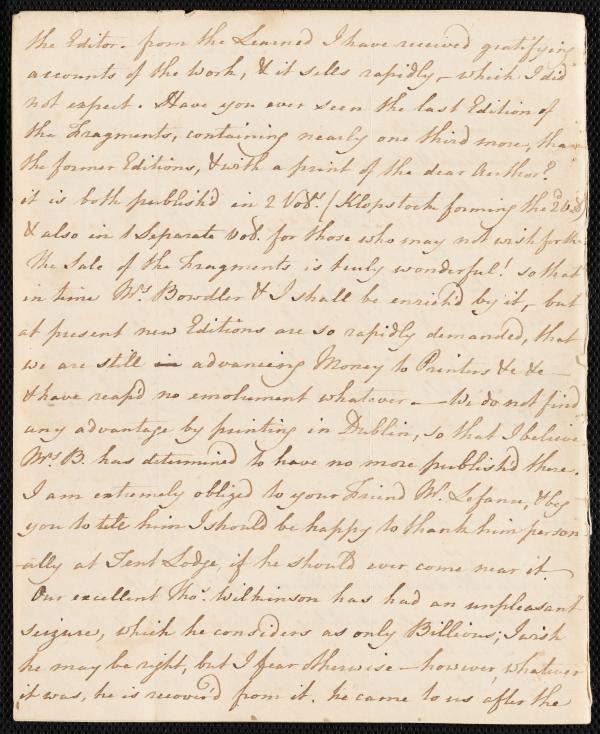 the Editor. from the Learned I have received gratifying
accounts of the Work, & it sells rapidly – which I did
not expect. Have you ever seen the last Edition of
the Fragments, containing nearly one third more, than
the former Editions, & with a print of the dear Author?
it is both publish'd in 2 Vols. (Klopstock forming the 2d
& also in 1 Separate vol. for those who may not wish for the
The Sale of the Fragments is truly wonderful! so that
in time Mrs Bowdler & I shall be enrich'd by it, but
at present new Editions are so rapidly demanded, that
we are still in advancing Money to Printers &c &c –
& have reap'd no emolument whatever. – We do not find
any advantage by printing in Dublin, so that I believe
Mrs B. has determined to have no more publish'd there.
I am extremely obliged to your Friend Mr. Lefanu, & beg
you to tell him I should be happy to thank him person
-ally at Tent Lodge, if he should ever come near it.
Our excellent Thos. Wilkinson has had an unpleasant
seizure, which he considers as only Billious; I wish
he may be right, but I fear otherwise – however, whatever
it was, he is recover'd from it. he came to us after the